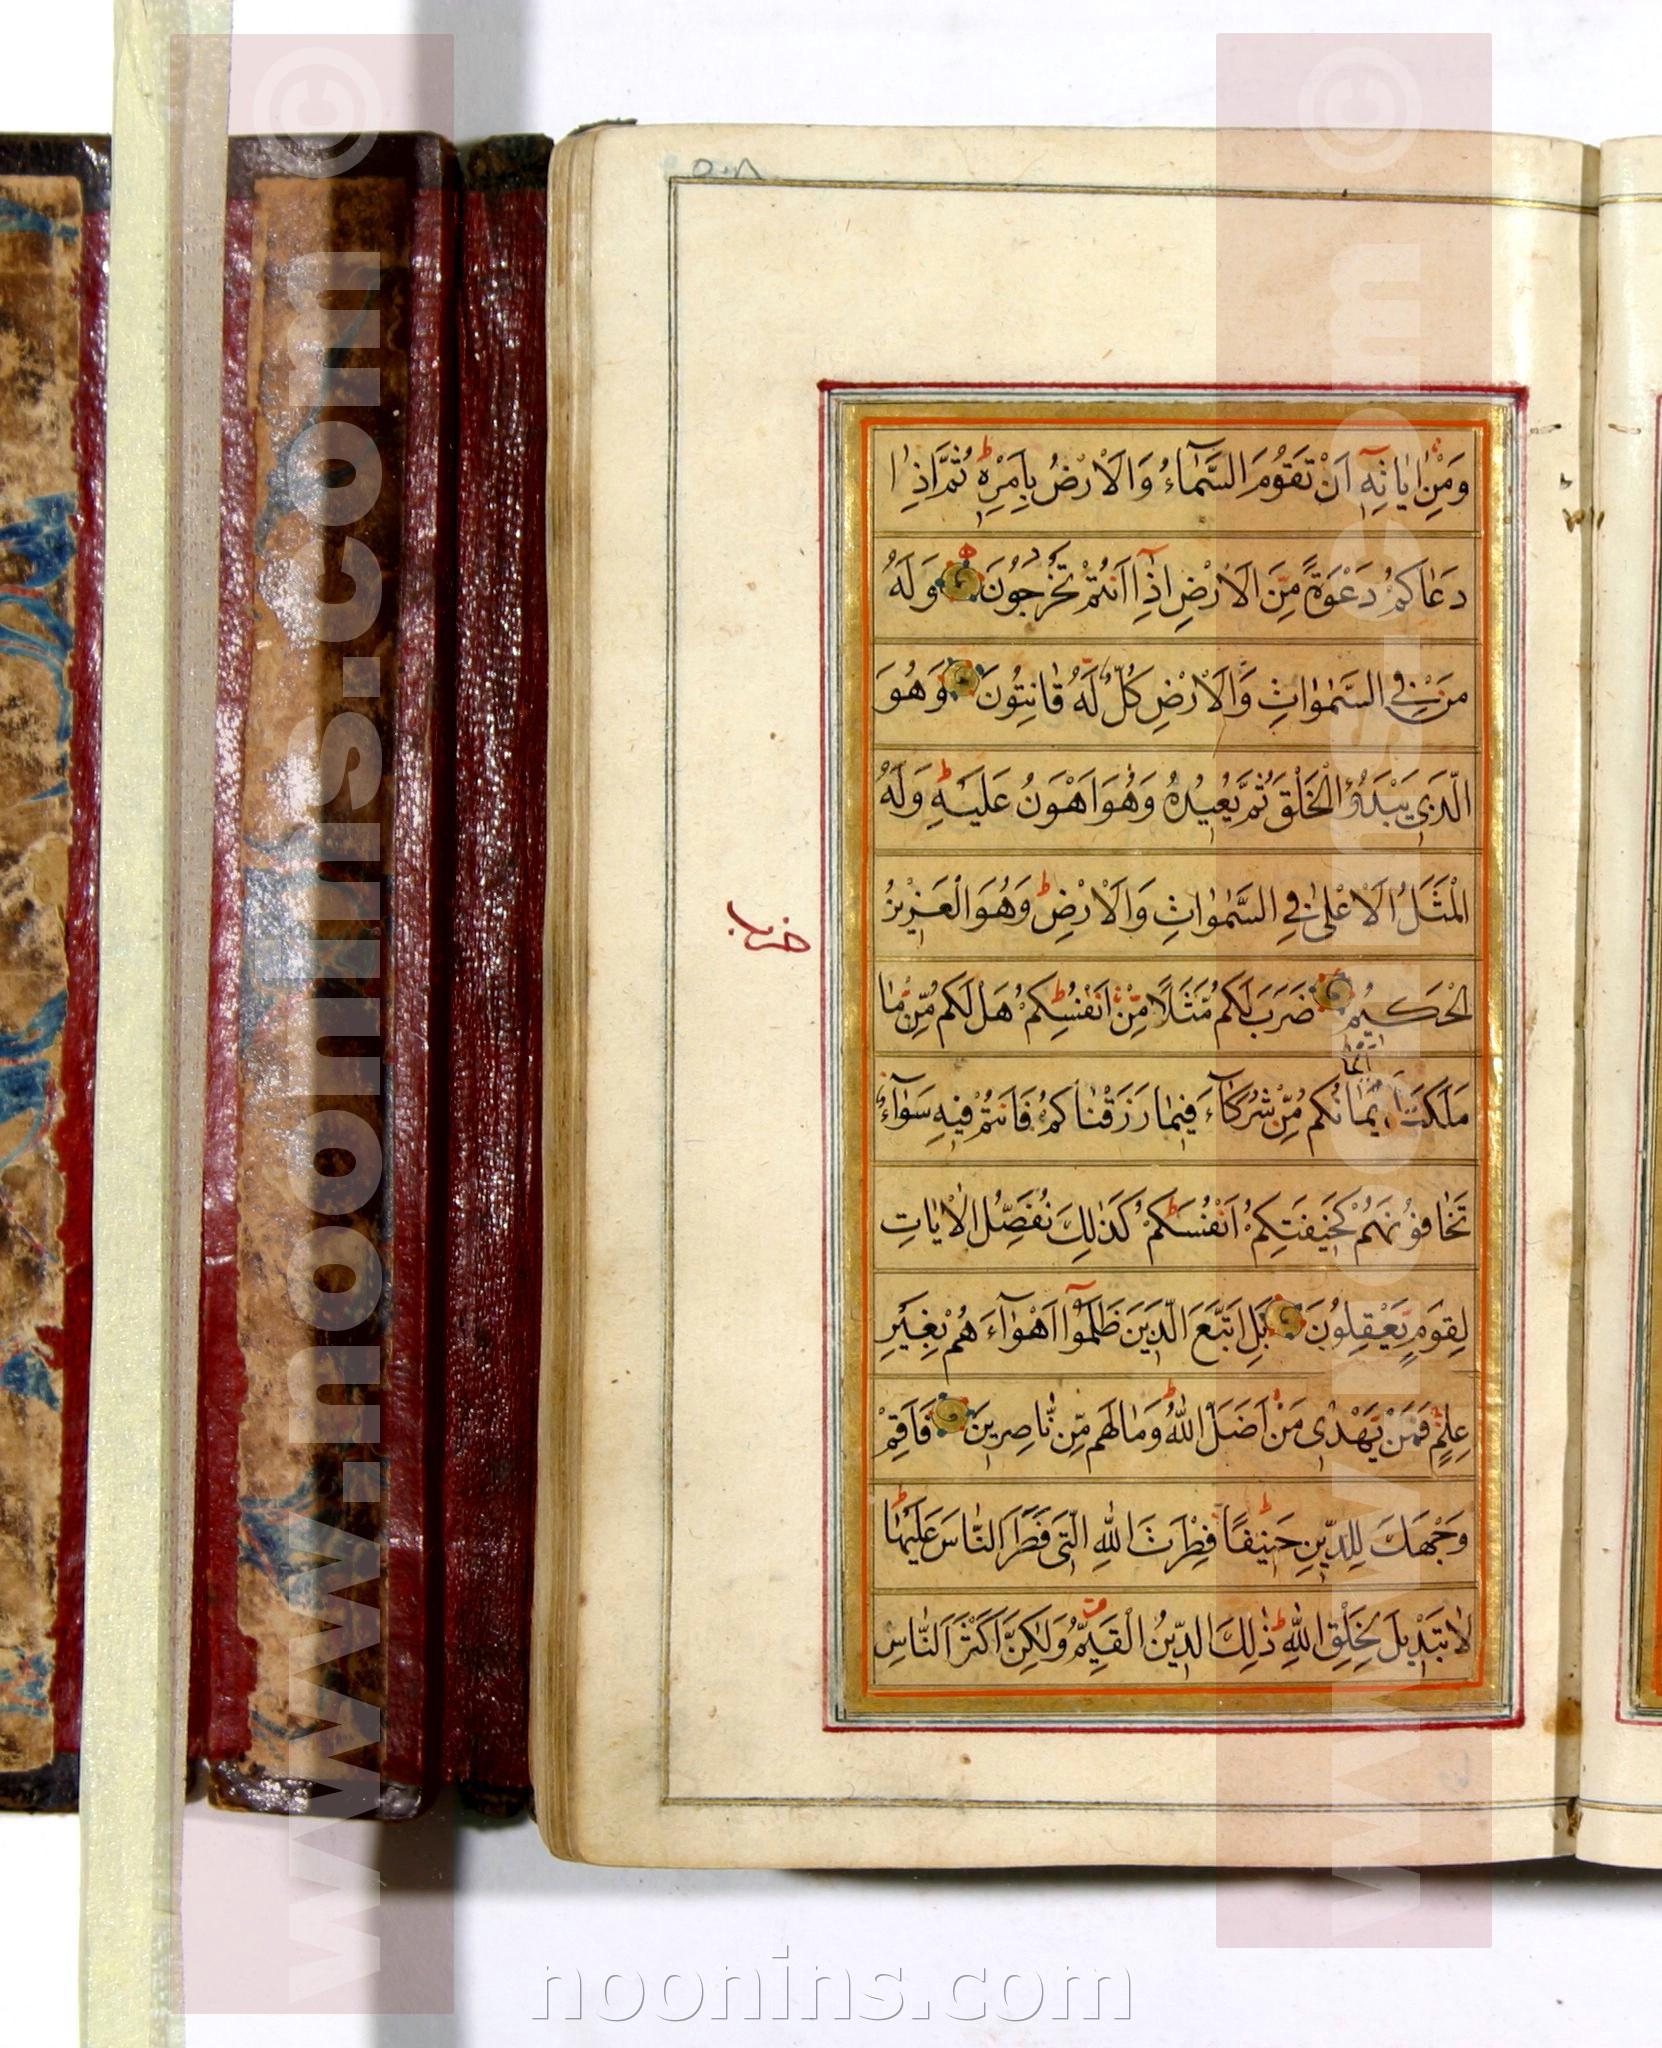 ٥٠٨
وَمِنْ اٰيٰاتِهِ اَنْ تَقُومَ السَّمٰآءُ وَالْاَرْضُ بِاَمْرِهِ ثُمَّ اِذٰا
دَعٰاكُمْ دَعْوَةً مِنَ الْاَرْضِ اِذٰآ اَنْتُمْ تَخْرُجُونَ وَلَهُ
مَنْ فِي السَّمٰوٰاتِ وَالْاَرْضِ كُلٌّ لَهُ قٰانِتُونَ وَهُوَ
الَّذِي يَبْدَؤُا الْخَلْقَ ثُمَّ يُعِيدُهُ وَهُوَ اَهْوَنُ عَلَيْهِ وَلَهُ
الْمَثَلُ الْاَعْلٰى فِي السَّمٰوٰاتِ وَالْاَرْضِ وَهُوَ الْعَزِيزُ
حزب
الْحَكِيمُ ضَرَبَ لَكُمْ مَثَلًا مِنْ اَنْفُسِكُمْ هَلْ لَكُمْ مِنْ مٰا
مَلَكَتْ اَيْمٰانُكُمْ مِنْ شُرَكٰآءَ فِيمٰا رَزَقْنٰاكُمْ فَاَنْتُمْ فِيهِ سَوٰآءٌ
تَخٰافُونَهُمْ كَخِيفَتِكُمْ اَنْفُسَكُمْ كَذٰلِكَ نُفَصِّلُ الْاٰيٰاتِ
لِقَوْمٍ يَعْقِلُونَ بَلِ اتَّبَعَ الَّذِينَ ظَلَمُوآ اَهْوٰآءَهُمْ بِغَيْرِ
عِلْمٍ فَمَنْ يَهْدِي مَنْ اَضَلَّ اللّٰهُ وَمٰا لَهُمْ مِنْ نٰاصِرِينَ فَاَقِمْ
وَجْهَكَ لِلدِّينِ حَنِيفًا فِطْرَتَ اللّٰهِ الَّتِي فَطَرَ النّٰاسَ عَلَيْهٰا
لٰا تَبْدِيلَ لِخَلْقِ اللّٰهِ ذٰلِكَ الدِّينُ الْقَيِّمُ وَلٰكِنَّ اَكْثَرَ النّٰاسِ
www.noonins.com ©
www.noonins.com ©
noonins.com